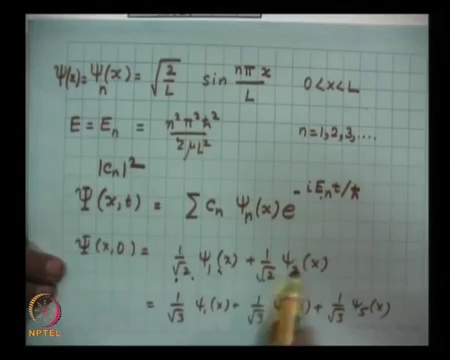 Ψ(x) = ψₙ(x) = √(2/L) sin nπx/L 0<x<L
E = Eₙ = n²π²ħ²/2μL² n = 1,2,3,....
|cₙ|²
Ψ(x,t) = Σ cₙ ψₙ(x) e^(-iEₙt/ħ)
Ψ(x,0) = 1/√2 ψ₁(x) + 1/√2 ψ₂(x)
= 1/√3 ψ₁(x) + 1/√3 ) + 1/√3 ψ₅(x)
NPTEL